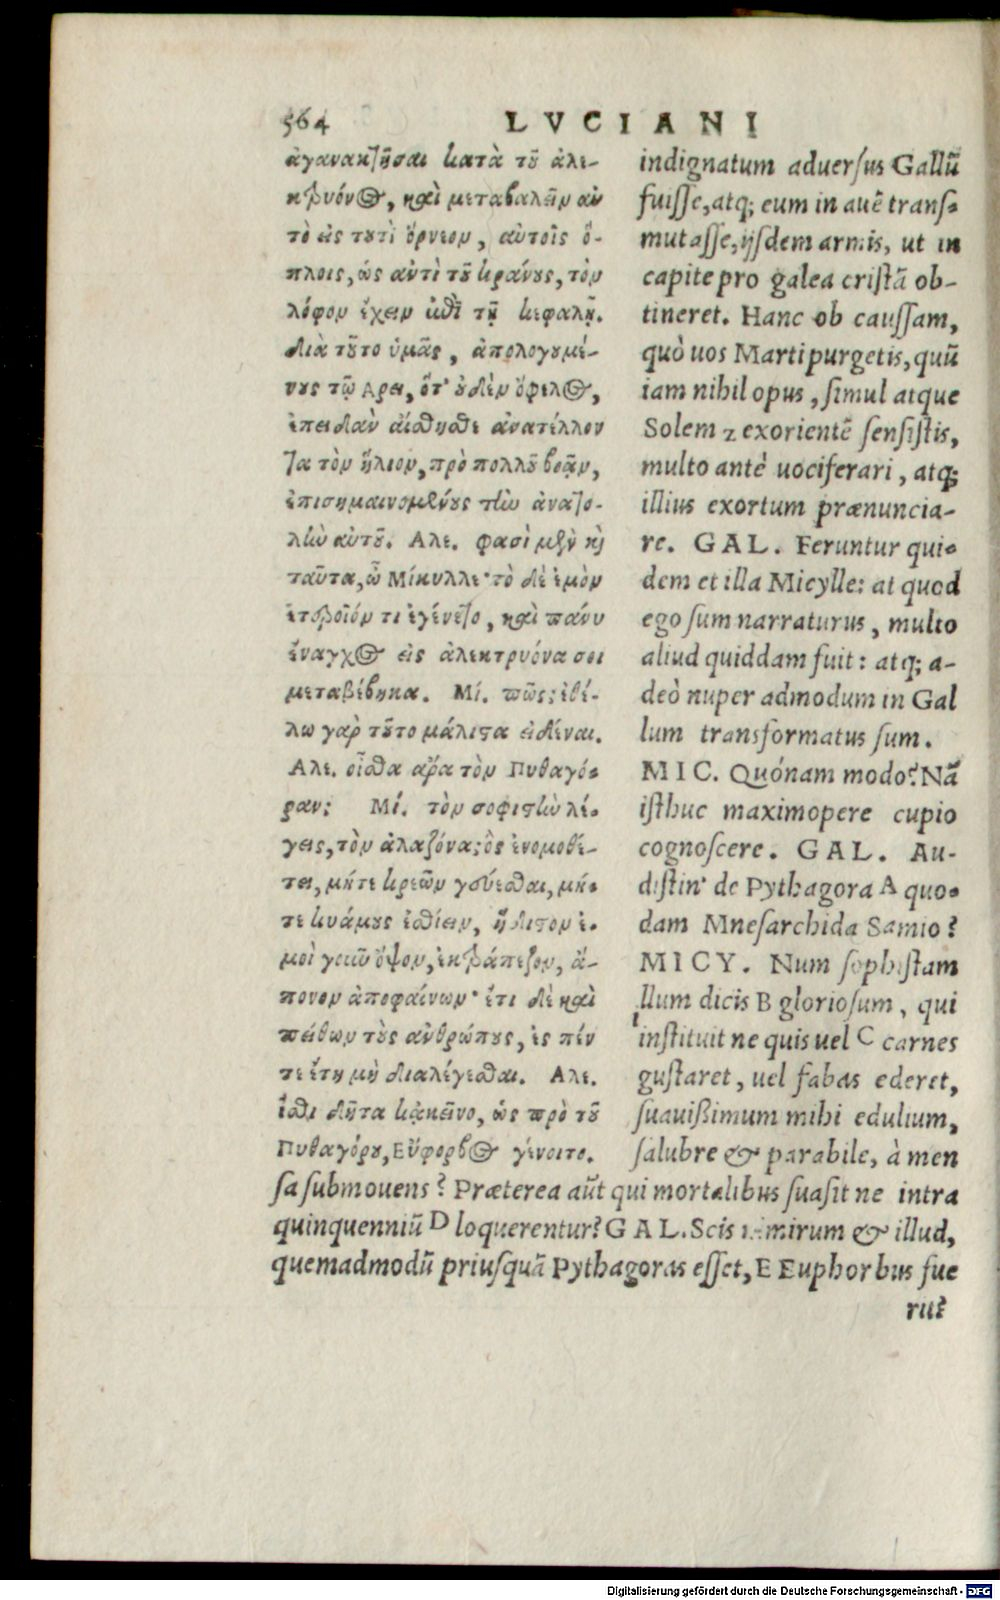 564 LVCIANI
ἀγανακτῆσαι κατὰ τοῦ ἀλε-
κτρυόνος, καὶ μεταβαλεῖν αὐ
τὸ εἰς τουτὶ ὄρνεον, αὐτοῖς ὅ-
πλοις, ὡς ἀντὶ τοῦ κράνους, τὸν
λόφον ἔχειν ἐπὶ τῇ κεφαλῇ.
διὰ τοῦτο ὑμᾶς, ἀπολογουμέ-
νους τῷ Αρει, ὅτ' οὐδὲν ὄφελος,
ἐπειδὰν αἴσθησθε ἀνατέλλον
τα τὸν ἥλιον, πρὸ πολλοῦ βοᾷν,
ἐπισημαινομένους τὴν ἀνατο-
λὴν αὐτοῦ. Αλε. φασὶ μὲν καὶ
ταῦτα, ὦ Μίκυλλε· τὸ δὲ ἐμὸν
ἑτεροῖόν τι ἐγένετο, καὶ πάνυ
ἔναγχος εἰς ἀλεκτρυόνα σοι
μεταβέβηκα. Μί. πῶς; ἐθέ-
λω γὰρ τοῦτο μάλιστα εἰδέναι.
Αλε. οἶσθα ἄρα τὸν Πυθαγό-
ραν; Μί. τὸν σοφιστὴν λέ-
γεις, τὸν ἀλαζόνα; ὃς ἐνομοθέ-
τει, μήτε κρεῶν γεύεσθαι, μή-
τε κυάμους ἐσθίειν, ἥδιστον ἐ-
μοὶ γοῦν ὄψον, ἐκτράπεζον, ἄ-
πονον ἀποφαίνων· ἔτι δὲ καὶ
πείθων τοὺς ἀνθρώπους, ἐς πέν
τε ἔτη μὴ διαλέγεσθαι. Αλε.
ἴσθι δῆτα κᾀκεῖνο, ὡς πρὸ τοῦ
Πυθαγόρου, Εὔφορβος γένοιτο.
indignatum aduersus Gallū
fuisse, atq; eum in auē trans-
mutasse, ijsdem armis, ut in
capite pro galea cristā ob-
tineret. Hanc ob caussam,
quò uos Marti purgetis, quū
iam nihil opus, simul atque
Solem z exorientē sensistis,
multo antè uociferari, atq;
illius exortum prænuncia-
re. GAL. Feruntur qui-
dem et illa Micylle: at quod
ego sum narraturus, multo
aliud quiddam fuit: atq; a-
deò nuper admodum in Gal
lum transformatus sum.
MIC. Quónam modo? Nā
isthuc maximopere cupio
cognoscere. GAL. Au-
distin' de Pythagora A quo-
dam Mnesarchida Samio?
MICY. Num sophistam
illum dicis B gloriosum, qui
instituit ne quis uel C carnes
gustaret, uel fabas ederet,
suauißimum mihi edulium,
salubre & parabile, à men
sa submouens? Præterea aūt qui mortalibus suasit ne intra
quinquenniū D loquerentur? GAL. Scis nimirum & illud,
quemadmodū priusquā Pythagoras esset, E Euphorbus fue
rit?
Digitalisierung gefördert durch die Deutsche Forschungsgemeinschaft - DFG